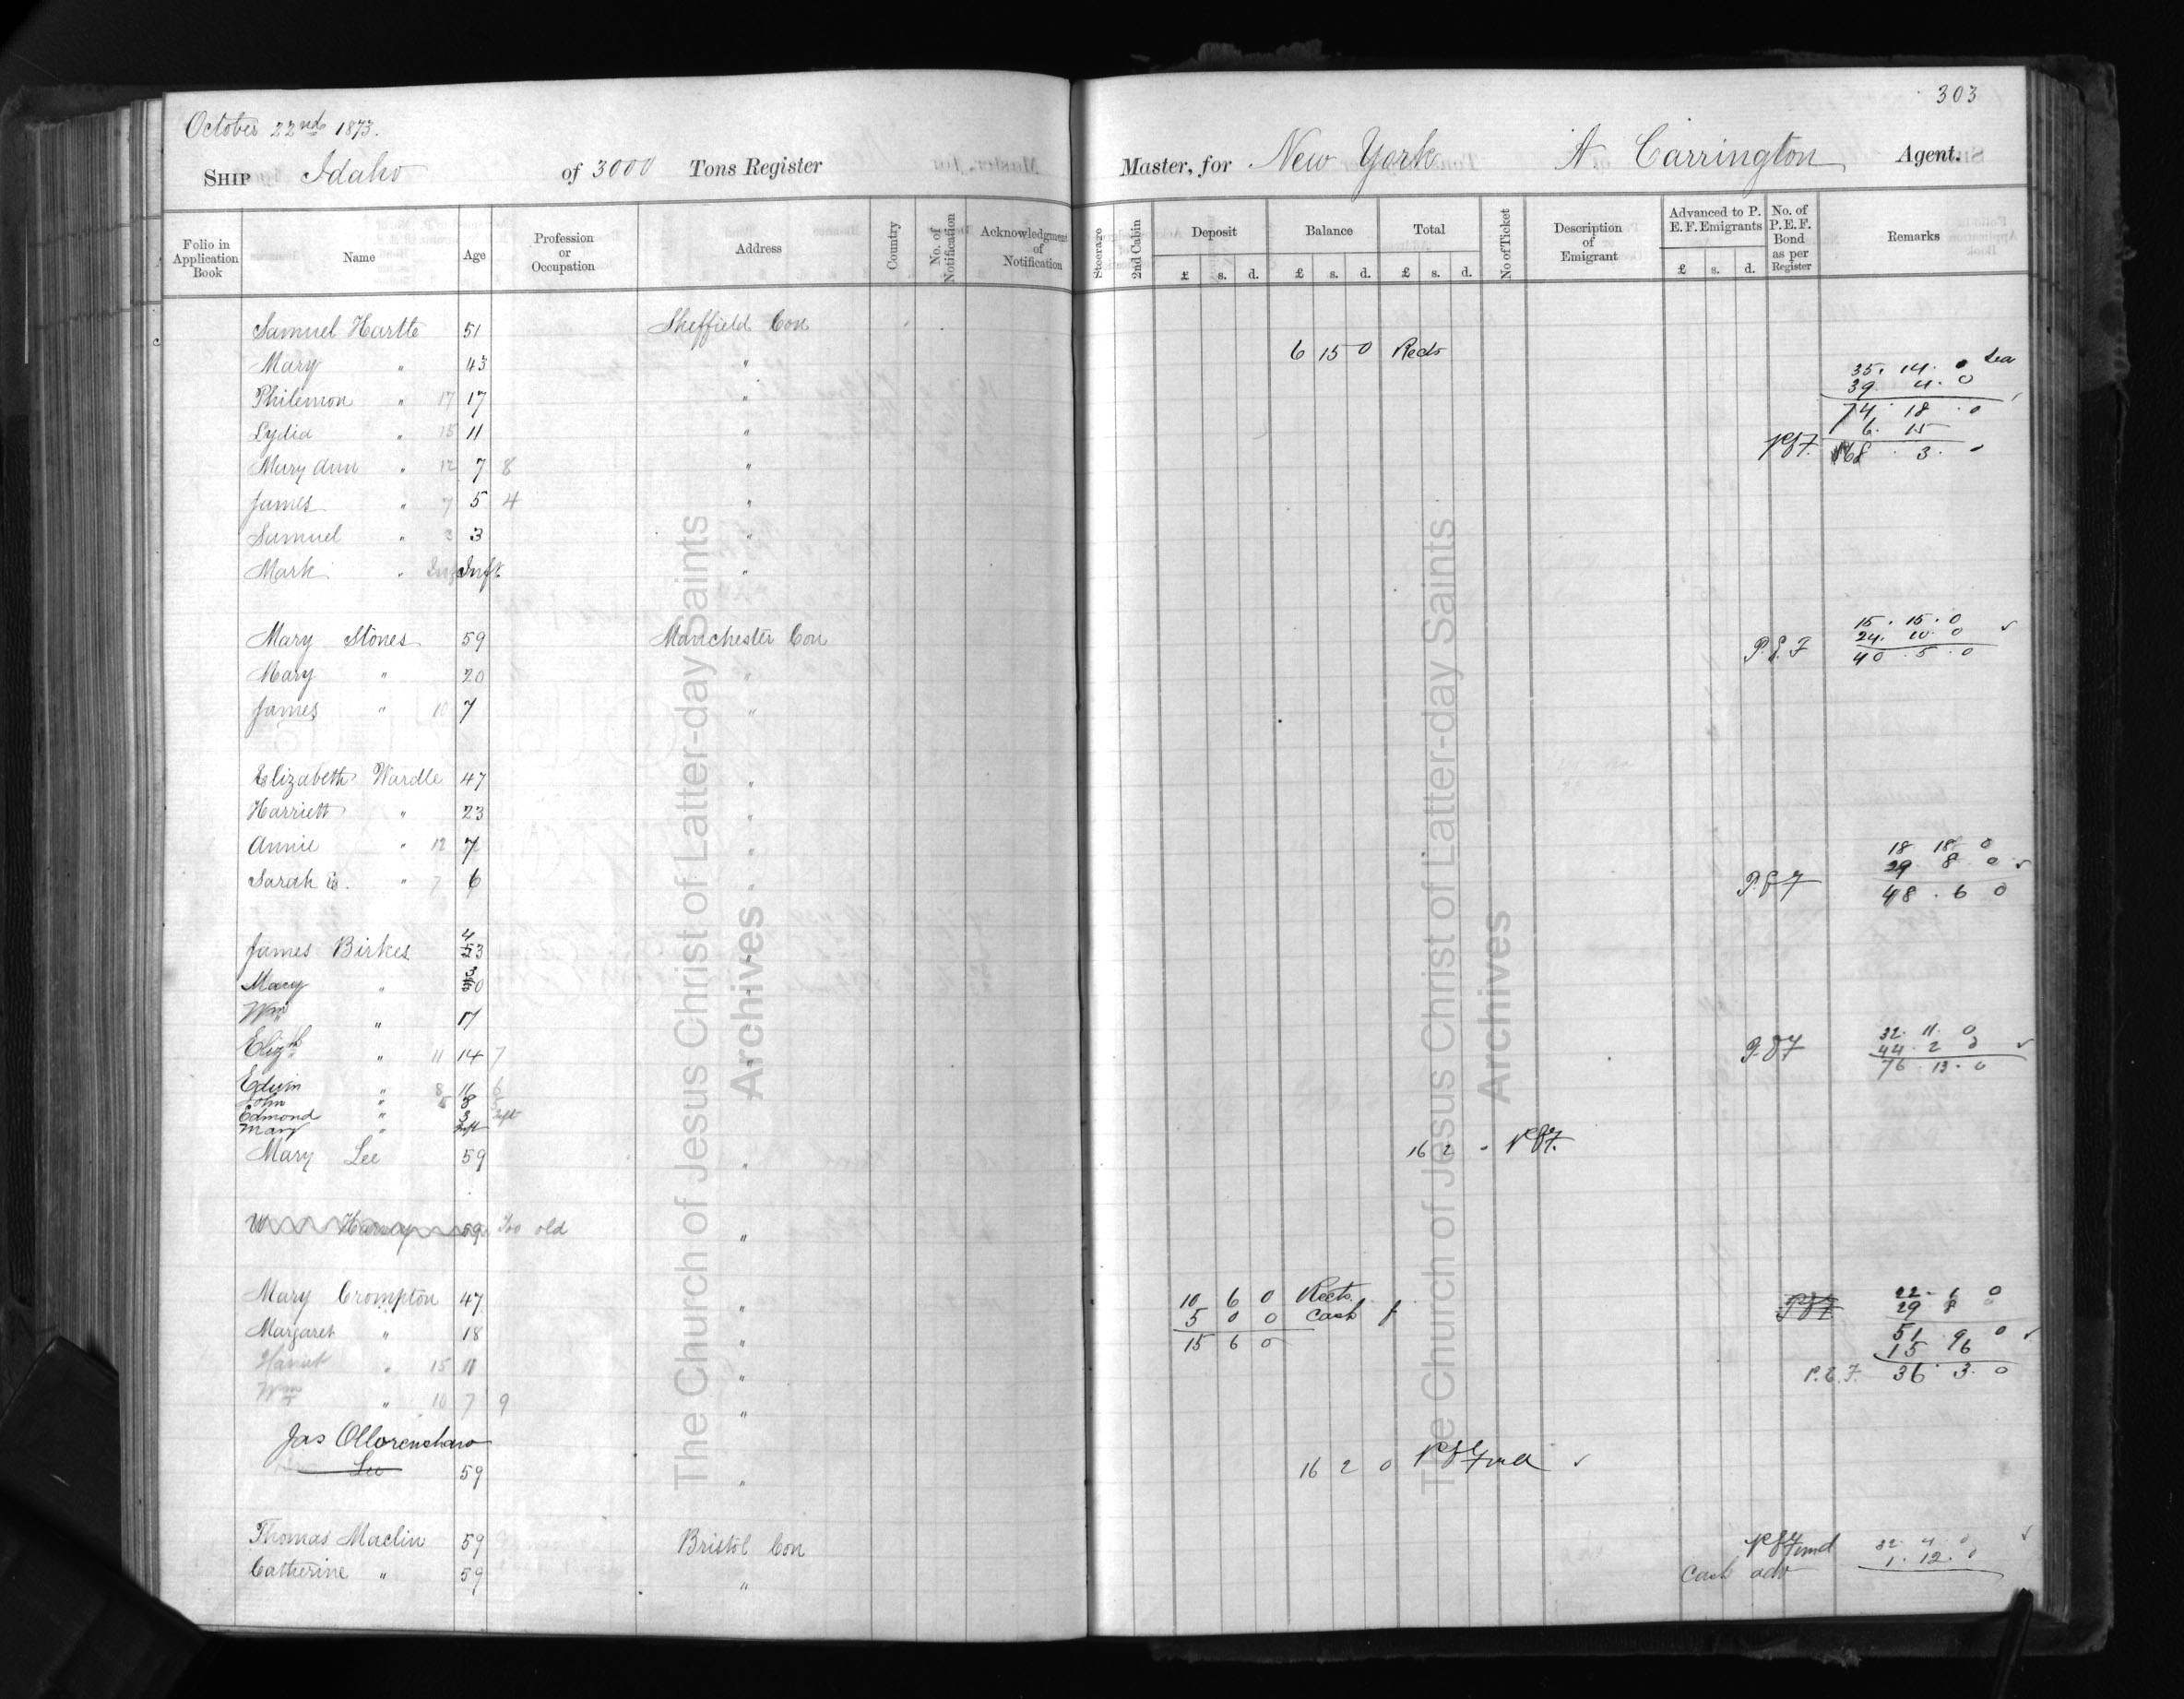 303
October 22nd 1873.
SHIP Idaho of 3000 Tons Register Master, for New York A Carrington Agent.
Folio in Application Book Name Age Profession or Occupation Address Country No. of Notification Acknowledgment of Notification Steerage 2nd Cabin Deposit Balance Total No of Ticket Description of Emigrant Advanced to P. E. F. Emigrants No. of P. E. F. Bond as per Register Remarks
£ s. d. £ s. d. £ s. d. £ s. d.
Samuel Hartle 51 Sheffield Con
6 15 0 Recd
Mary " 43 " 35. 14. 0 Lea
39 4. 0
Philemon " 17 17 "
74 18 . 0
Lydia " 15 11 " 6. 15
PEF. 68 . 3. -
Mary Ann " 12 7 8 "
James " 7 5 4 "
Samuel " 3 3 "
Mark " Inf Inft "
15. 15. 0
Mary Stones 59 Manchester Con P.E.F 24. 10 0
40 . 5 . 0
Mary " 20 "
James " 10 7 "
Elizabeth Wardle 47 "
Harriett " 23 "
Annie " 12 7 " 18 18 0
29 8 0
Sarah E. " 7 6 " P.E.F 48 . 6 0
James Birkes 4 53 "
Mary " 3 50 "
Wm " 17
Elizth " 11 14 7 " P.E.F 32. 11. 0
44. 2 0
76. 13. 0
Edwin " 8 16 6
John " 8
Edmond " 3 Inft
Mary " Inft
Mary Lee 59 " 16 2 - PEF.
W Harvey 59 Too old "
Mary Crompton 47 " 10 6 0 Rects. PEF 22. 1 0
5 0 0 Cash 29 8 0
Margaret " 18 " 15 6 0 51 9 0
15 . 6
Harriet " 15 11 " P.E.F. 36 3. 0
Wm " 10 7 9 "
Jas Ollorenshaw
Lee 59 " 16 2 0 PEFund
Thomas Maclin 59 Bristol Con PEFund 32. 4. 0
Catherine " 59 " Cash adv 1. 12. 0
The Church of Jesus Christ of Latter-day Saints
Archives
The Church of Jesus Christ of Latter-day Saints
Archives